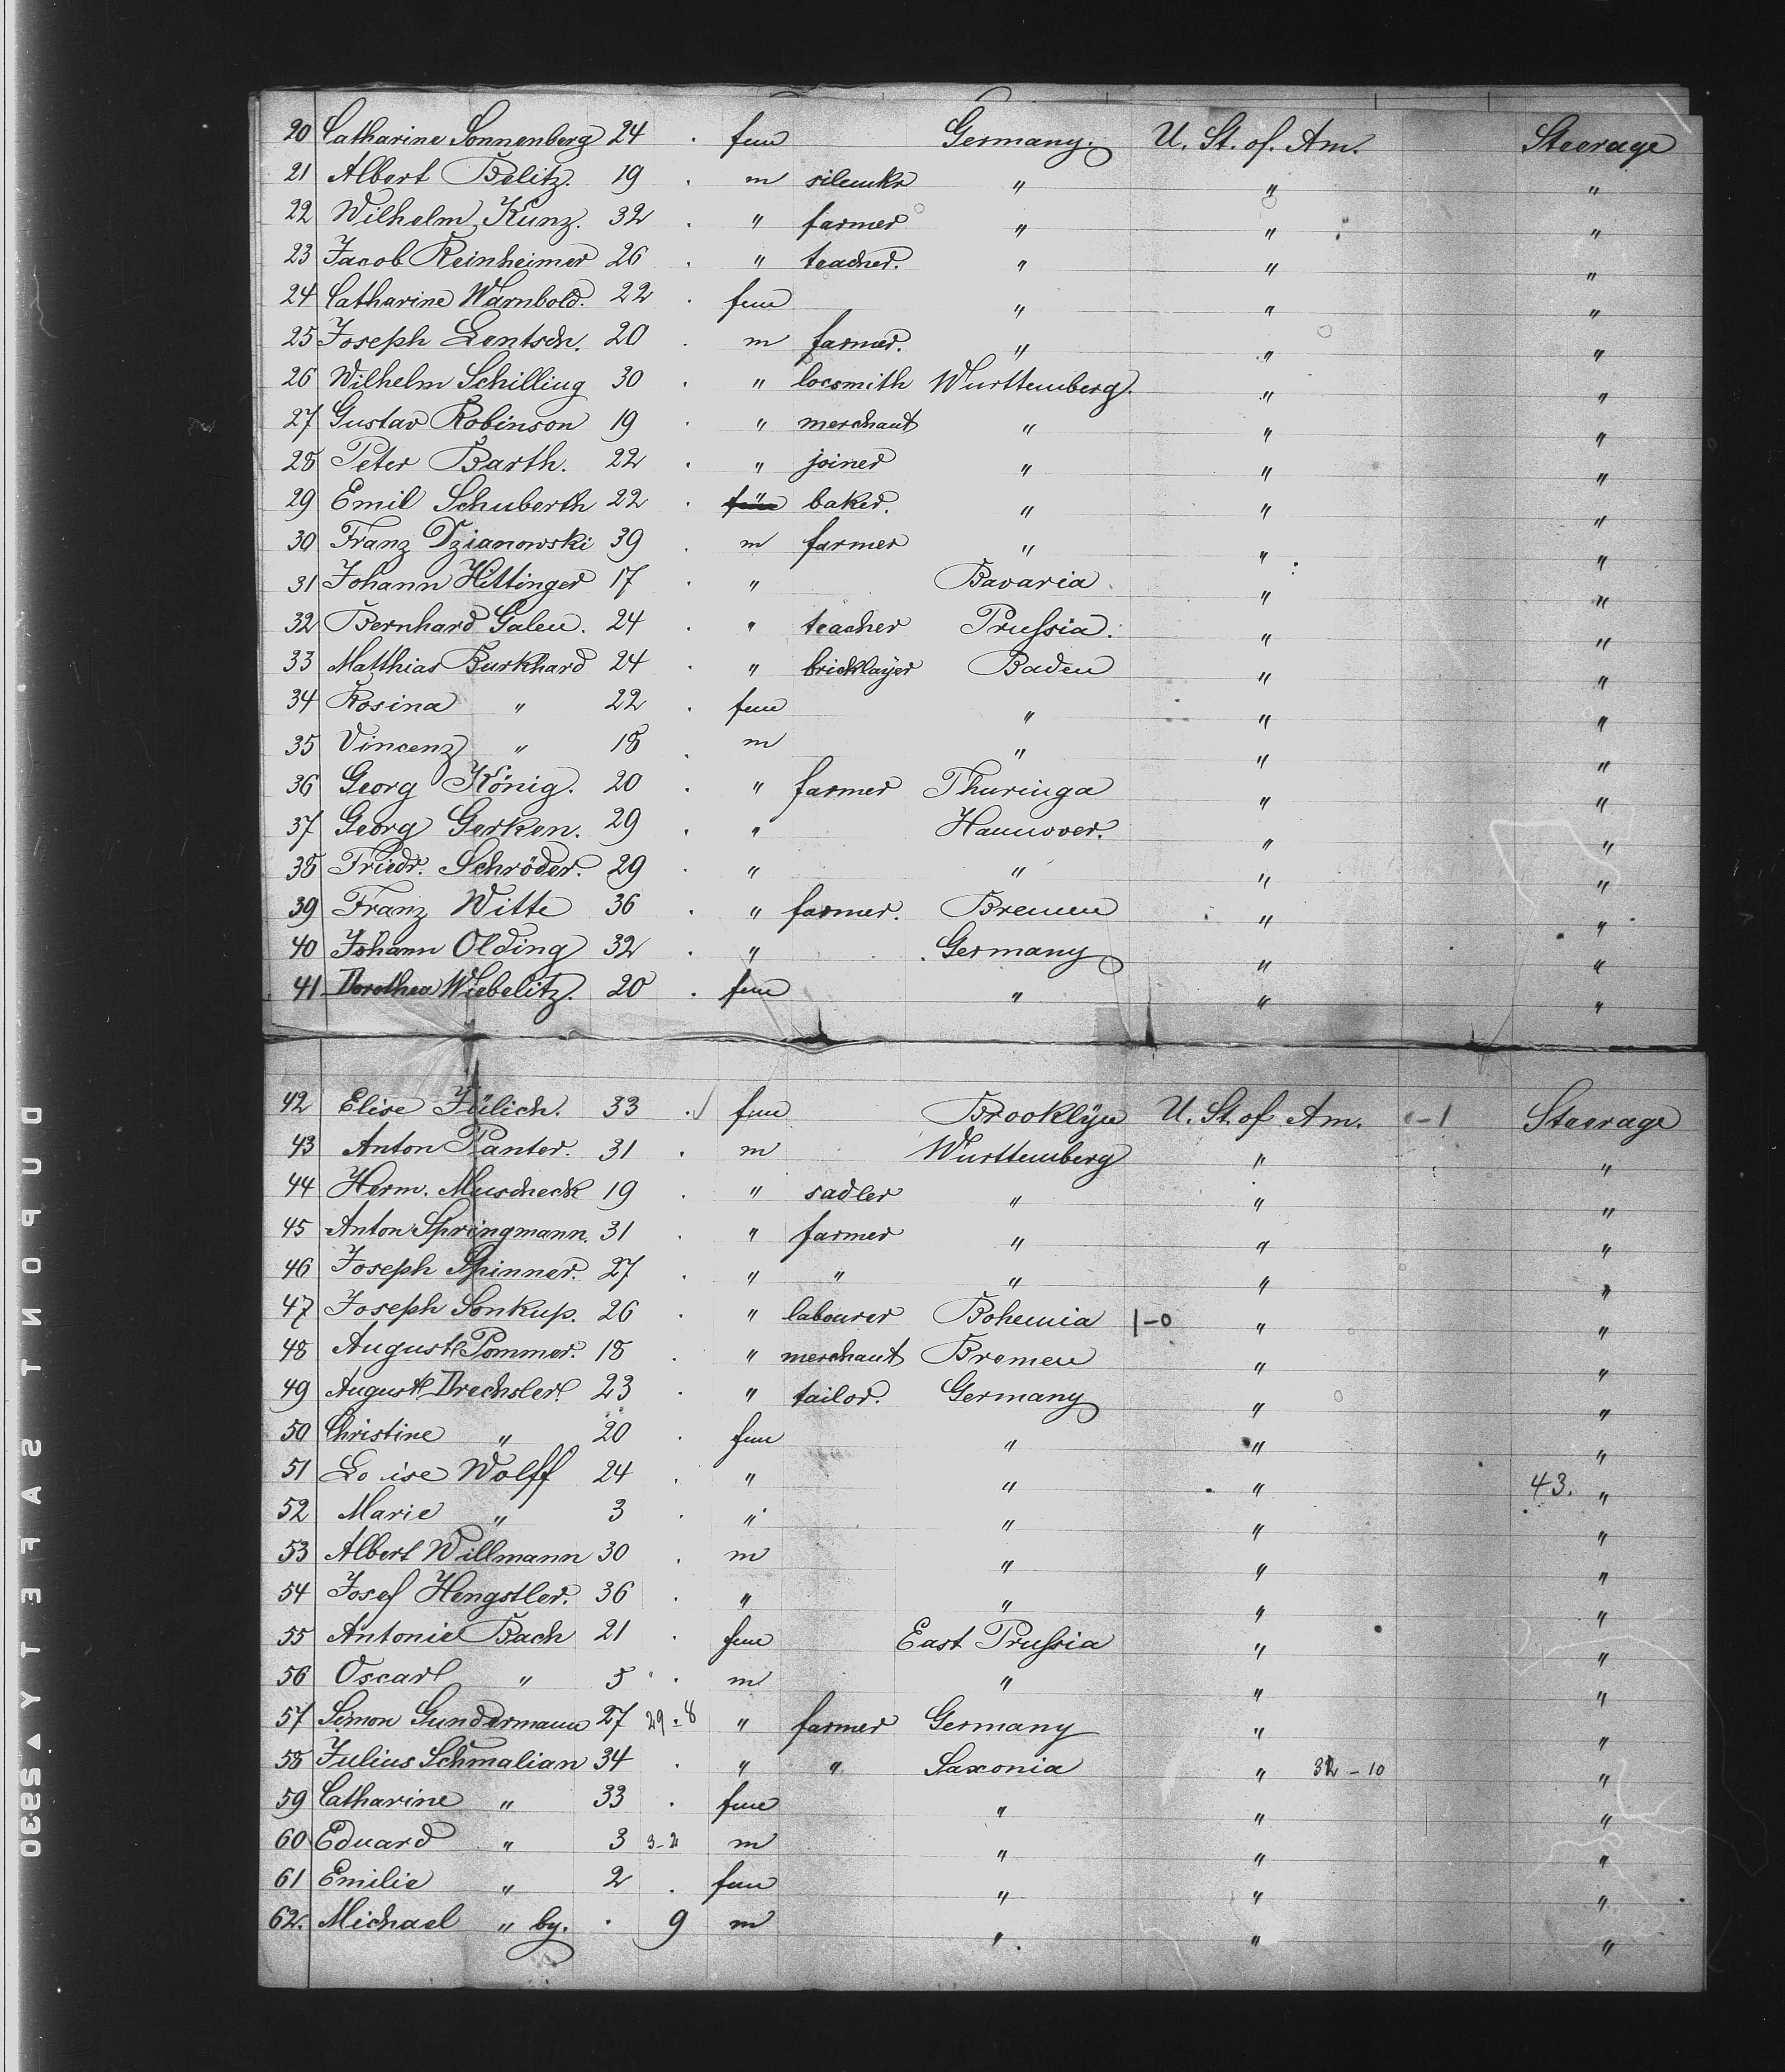 20 Catharine Sonnenberg 24 . fem Germany. U. St. of. Am. Steerage
21 Albert Belitz. 19 . m " " "
22 Wilhelm Kunz. 32 . " farmer " " "
23 Jacob Reinheimer 26 . " teacher. " " "
24 Catharine Warnbold. 22 . fem " " "
25 Joseph Lentsch. 20 . m farmer. " " "
26 Wilhelm Schilling 30 . " locsmith Wurttemberg. " "
27 Gustav Robinson 19 . " merchant " " "
28 Peter Barth. 22 . " joiner " " "
29 Emil Schuberth 22 . " baker. " " "
30 Franz Dzianowski 39 . m farmer " " "
31 Johann Hittinger 17 . " Bavaria " "
32 Bernhard Galen. 24 . " teacher Prussia. " "
33 Matthias Burkhard 24 . " bricklayer Baden " "
34 Rosina " 22 . fem " " "
35 Vincenz " 18 . m " " "
36 Georg König. 20 . " farmer Thuringa " "
37 Georg Gerken. 29 . " Hannover. " "
38 Friedr. Schröder. 29 . " " " "
39 Franz Witte 36 . " farmer. Bremen " "
40 Johann Olding 32 . " Germany " "
41 Dorothea Wiebelitz. 20 . fem " " "
42 Elise Jülich. 33 . fem Brooklyn U. St. of Am. -1 Steerage
43 Anton Panter. 31 . m Wurttemberg " "
44 Herm. Muscheck 19 . " sadler " " "
45 Anton Springmann. 31 . " farmer " " "
46 Joseph Spinner. 27 . " " " " "
47 Joseph Sonkup. 26 . " labourer Bohemia 1-0 " "
48 August Pommer. 18 . " merchant Bremen " "
49 August Drechsler 23 . " tailor. Germany " "
50 Christine " 20 . fem " " "
51 Lo ise Wolff 24 . " " " 43. "
52 Marie " 3 . " " " "
53 Albert Willmann 30 . m " " "
54 Josef Hengstler. 36 . " " " "
55 Antonie Bach 21 . fem East Prussia " "
56 Oscar " 5 . m " " "
57 Simon Gundermann 27 29-8 " farmer Germany " "
58 Julius Schmalian 34 . " " Saxonia " 32-10 "
59 Catharine " 33 . fem " " "
60 Eduard " 3 3-2 m " " "
61 Emilie " 2 . fem " " "
62. Michael " by. . 9 m " " "
DUPONT SAFETY ▲ 2930